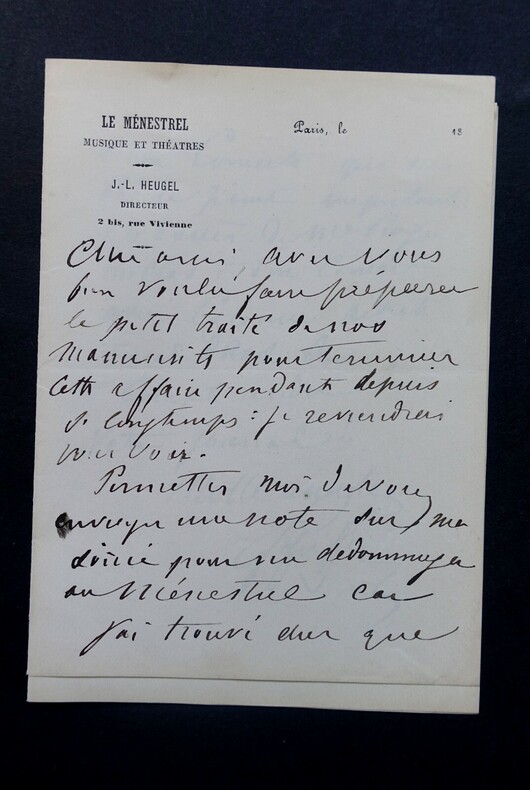 LE MÉNESTREL
MUSIQUE ET THÉATRES
J.-L. HEUGEL
DIRECTEUR
2 bis, rue Vivienne
Paris, le 18
Cher ami avez vous
bien voulu faire préparer
le petit traité de nos
manuscrits pour terminer
cette affaire pendante depuis
si longtemps : je reviendrai
vous voir.
Permettez moi de vous
envoyer une note sur ma
soirée pour me dedommager
au Ménestrel car
j'ai trouvé cher que